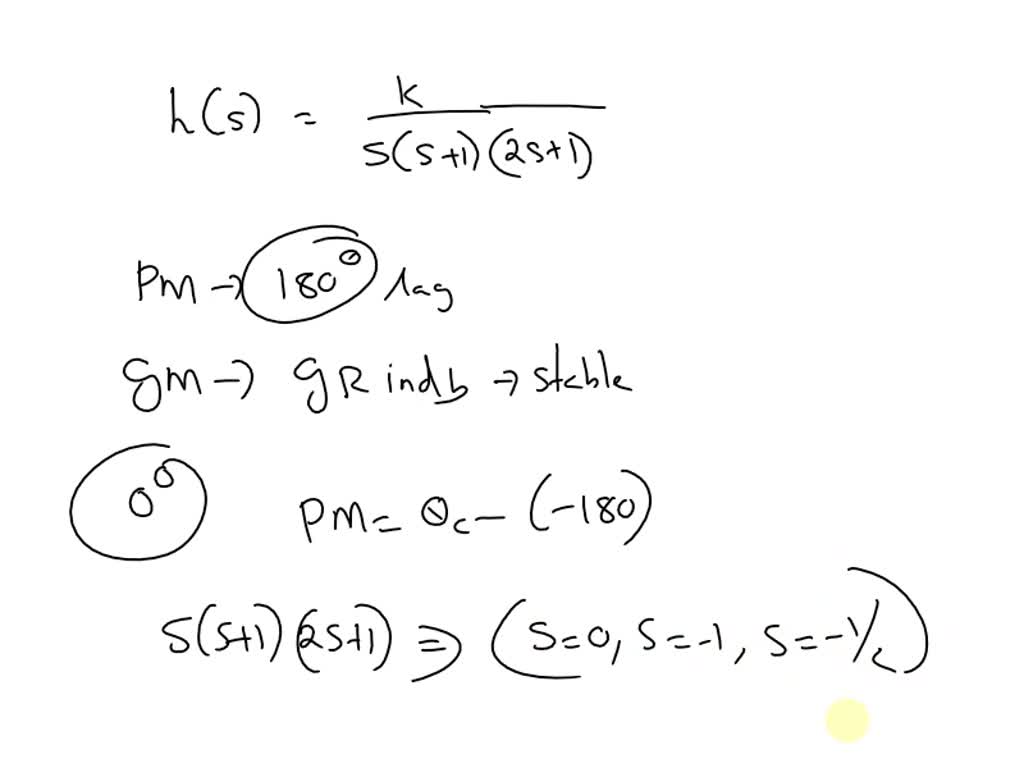 h(s) = K / s(s+1)(2s+1)
PM → 180° lag
gm → gR in db → stable
0°
PM = θc - (-180)
s(s+1)(2s+1) ⇒ (s=0, s=-1, s=-1/2)